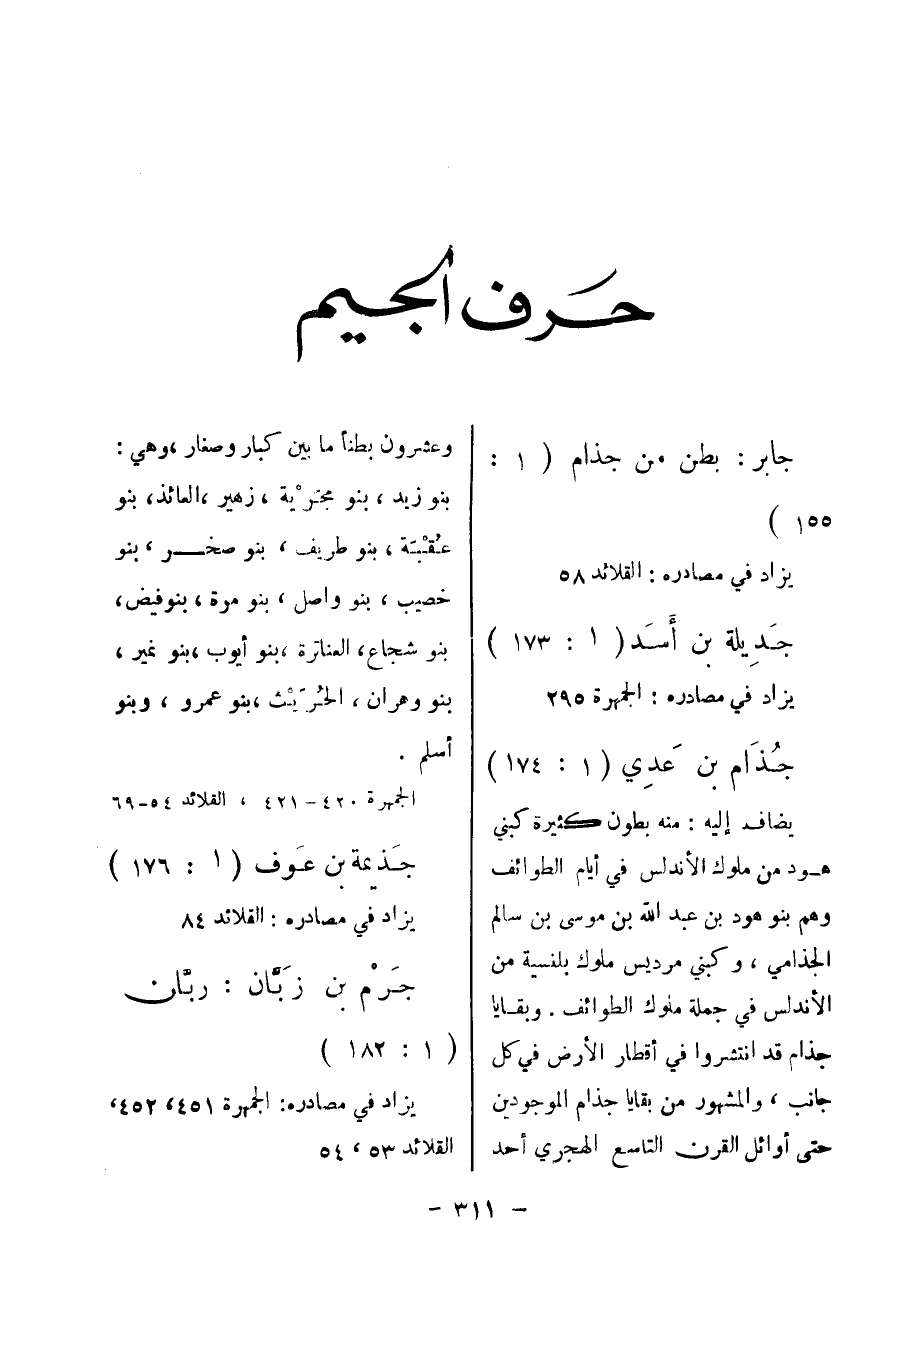 حَرف الجيم
جابر : بطن من جذام ( ١ :
١٥٥ )
يزاد في مصادره : القلائد ٥٨
جَدِيلة بن أَسَد ( ١ : ١٧٣ )
يزاد في مصادره : الجمهرة ٢٩٥
جُذَام بن عَدِي ( ١ : ١٧٤ )
يضاف إليه : منه بطون كثيرة كبني
هود من ملوك الأندلس في أيام الطوائف
وهم بنو هود بن عبد الله بن موسى بن سالم
الجذامي ، وكبني مرديس ملوك بلنسية من
الأندلس في جملة ملوك الطوائف . وبقايا
جذام قد انتشروا في أقطار الأرض في كل
جانب ، والمشهور من بقايا جذام الموجودين
حتى أوائل القرن التاسع الهجري أحد
وعشرون بطناً ما بين كبار وصغار ، وهي :
بنو زيد ، بنو مجَرْية ، زهير ، العائذ ، بنو
عُقْبَة ، بنو طريف ، بنو صخر ، بنو
خصيب ، بنو واصل ، بنو مرة ، بنو فيض ،
بنو شجاع ، العناترة ، بنو أيوب ، بنو نمير ،
بنو وهران ، الحُرَيْث ، بنو عمرو ، وبنو
أسلم .
الجمهرة ٤٢٠ – ٤٢١ ، القلائد ٥٤–٦٩
جَذيمة بن عَوف ( ١ : ١٧٦ )
يزاد في مصادره : القلائد ٨٤
جَرْم بن زَبَّان : ربَّان
( ١ : ١٨٢ )
يزاد في مصادره : الجمهرة ٤٥١ ، ٤٥٢ ،
القلائد ٥٣ ، ٥٤
– ٣١١ –